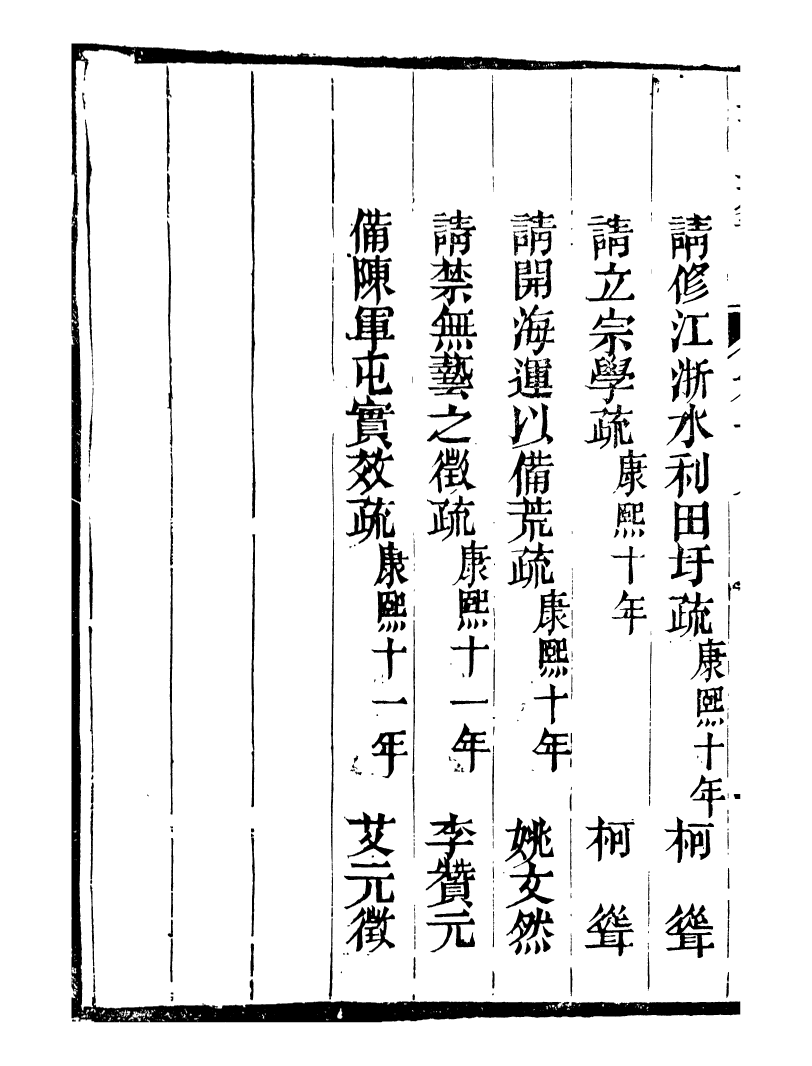 請修江浙水利田圩疏康熙十年 柯聳
請立宗學疏康熙十年 柯聳
請開海運以備荒疏康熙十年 姚文然
請禁無藝之徵疏康熙十一年 李贊元
備陳軍屯實效疏康熙十一年 艾元徵